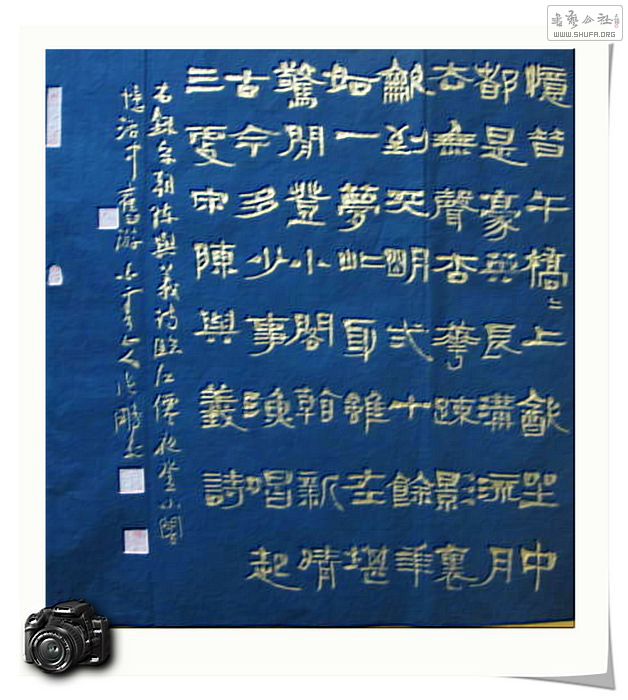 書藝公社
WWW.SHUFA.ORG
憶昔午橋〻上飲坐中
都是豪英長溝流月
去無聲杏花疎影裏
龡到天明弍十餘年
如一夢此身雖在堪
驚閒登小閣看新晴
古今多少事漁唱起
三更宋陳與義詩
右錄宋朝陳與義詩臨江僊夜登小閣
憶洛中舊游